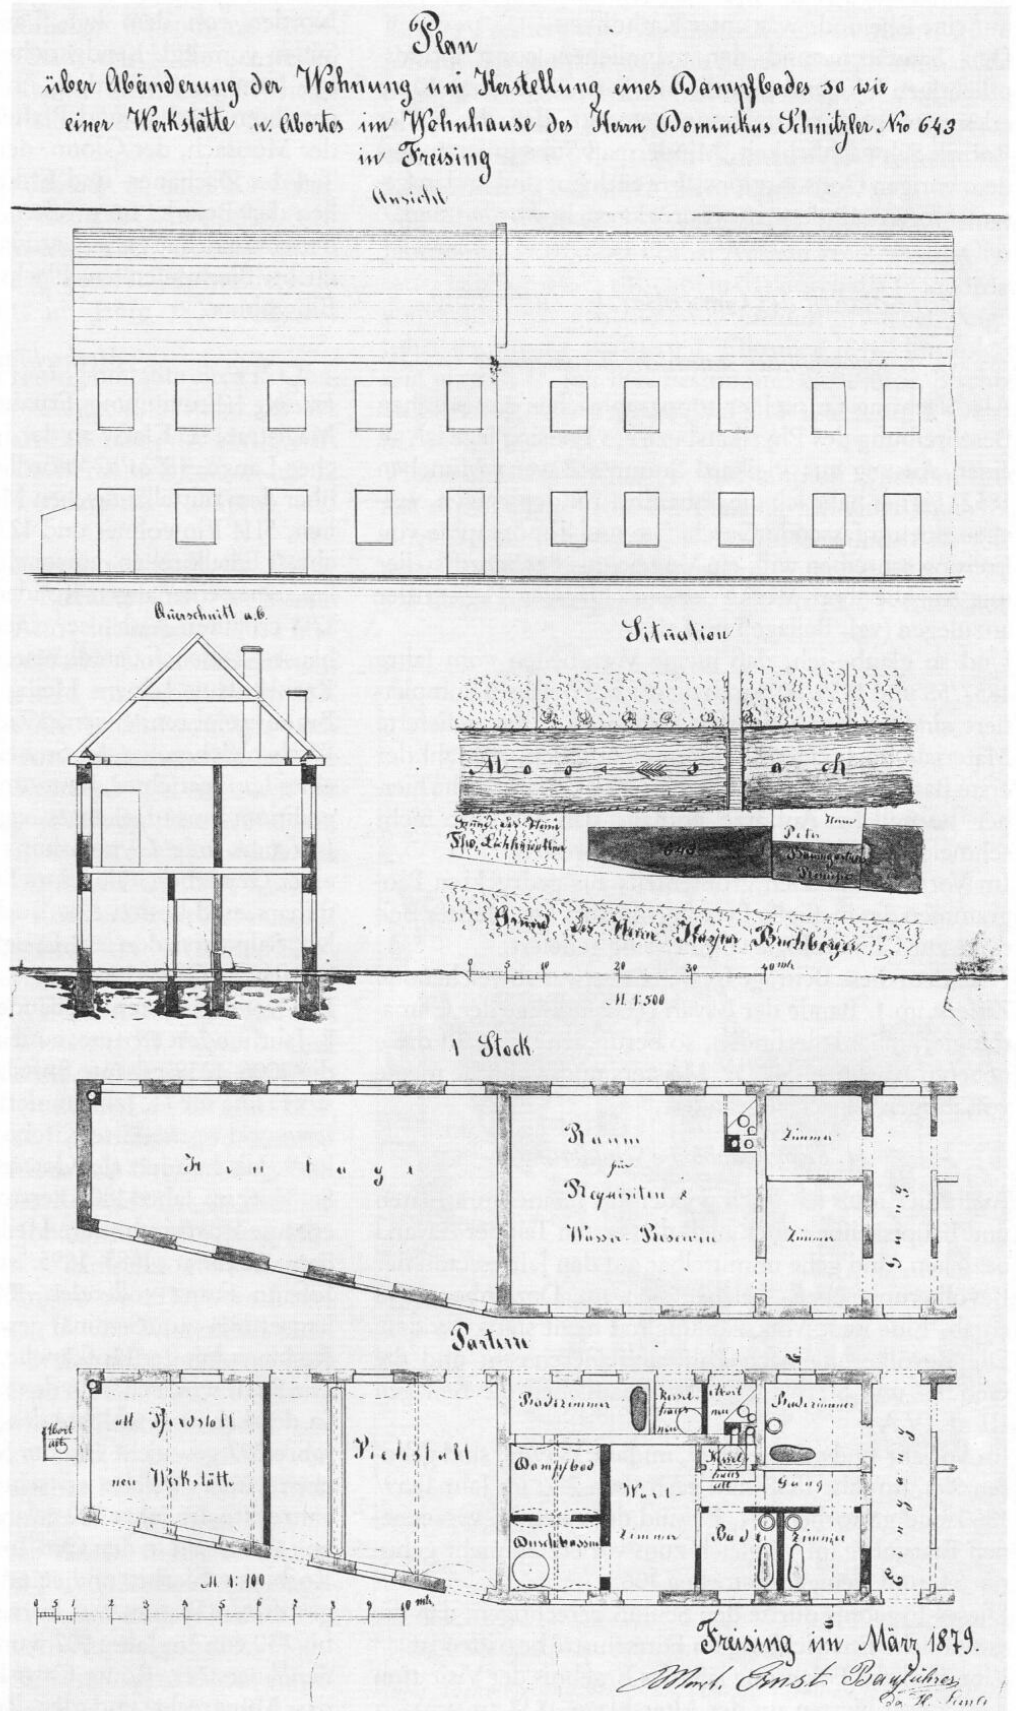 Plan
über Abänderung der Wohnung und Herstellung eines Dampfbades so wie
einer Werkstätte u. Abortes im Wohnhause des Herrn Dominikus Schnitzler Nro 643
in Freising
Ansicht
Querschnitt a.b.
Situation
Moosach
Grund des Herrn
643
Herrn
Peter
Baumgartner
Grund des Herrn Kaspar Buchberger
0 5 10 20 30 40 mtr.
M. 1:500
1 Stock
Heulage
Raum
für
Requisiten &
Wasser Reservoir
Zimmer
Zimmer
Gang
Parterre
Abort
alt
alt Pferdstall
neu Werkstätte
Viehstall
Badezimmer
Kessel
haus
neu
Abort
neu
Badezimmer
Dampfbad
Kessel
haus
alt
Wart
Zimmer
Gang
Douschbassin
Bade Zimmer
Eingang
M. 1:100
0 5 1 2 3 4 5 6 7 8 9 10 mtr.
Freising im März 1879.
Mart. Ernst Bauführer